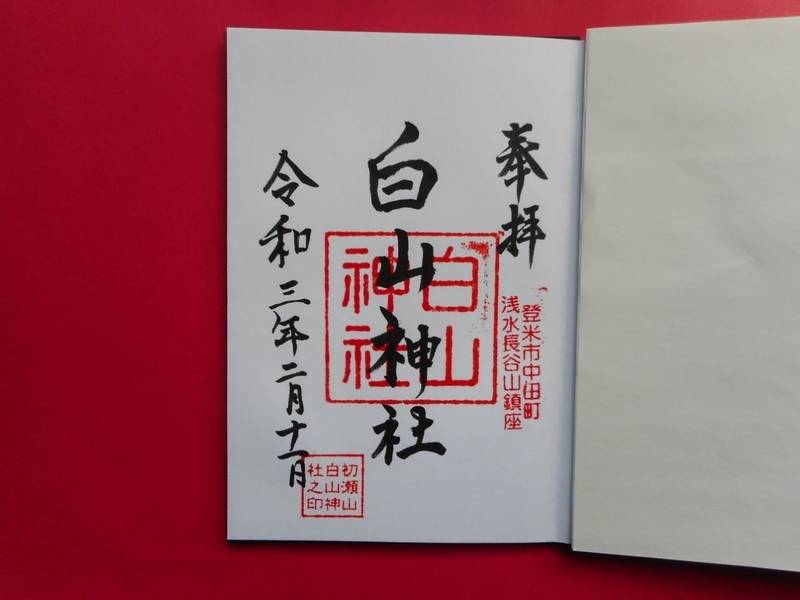 奉拝
登米市中田町
浅水長谷山鎮座
白山神社
白山
神社
令和三年二月十一日
初瀬山
白山神
社之印